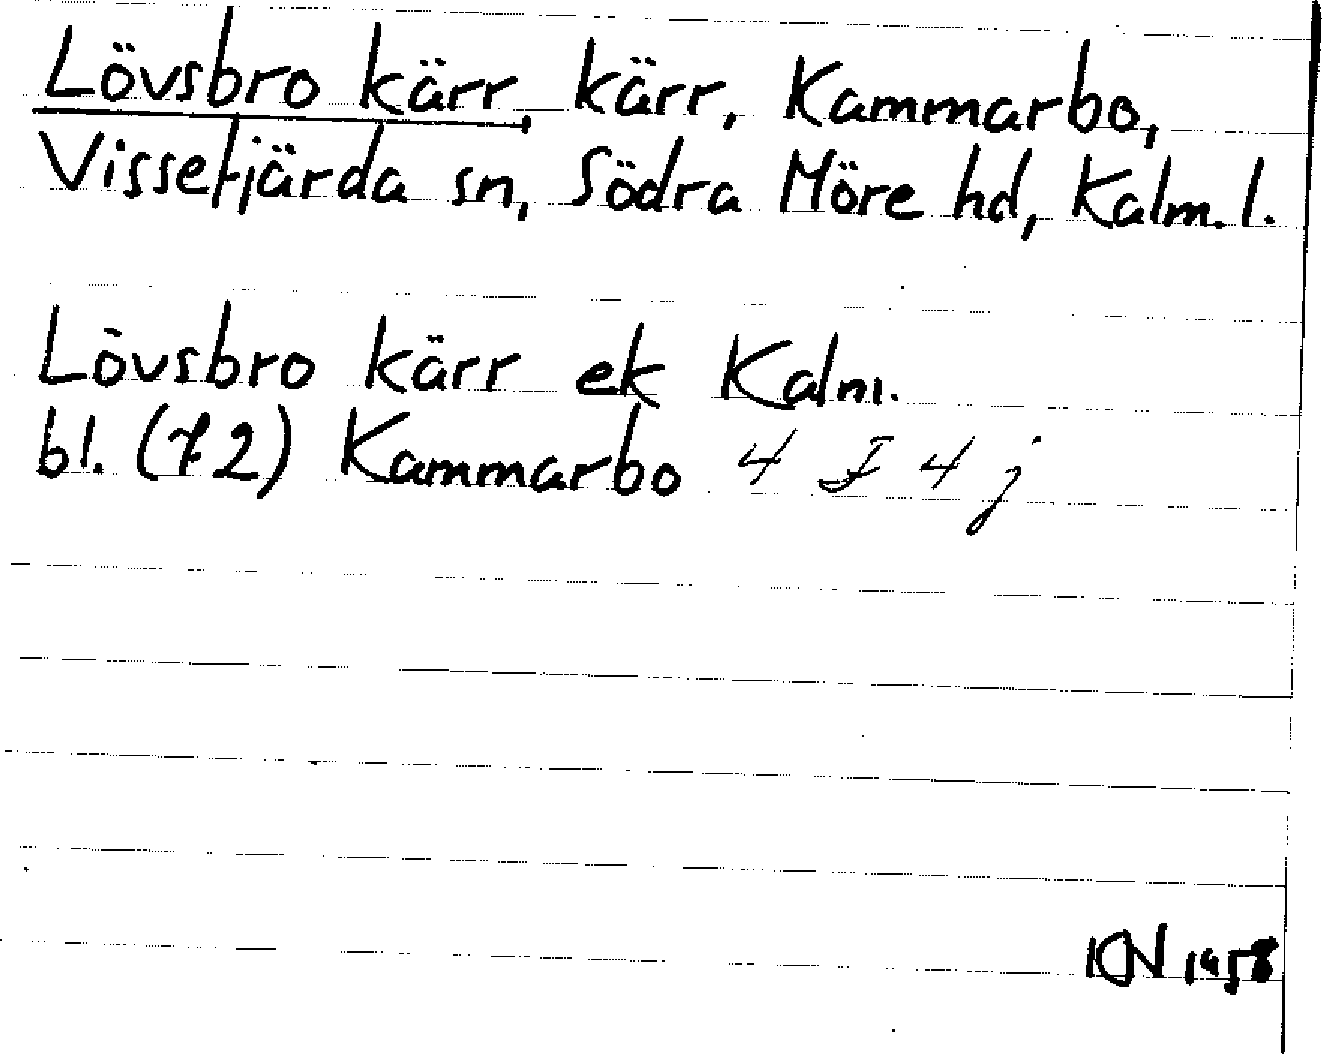 Lövsbro kärr, kärr, Kammarbo,
Vissefjärda sn, Södra Möre hd, Kalm. l.
Lövsbro kärr ek Kalm.
bl. (72) Kammarbo 4 F 4 j
KN 1958